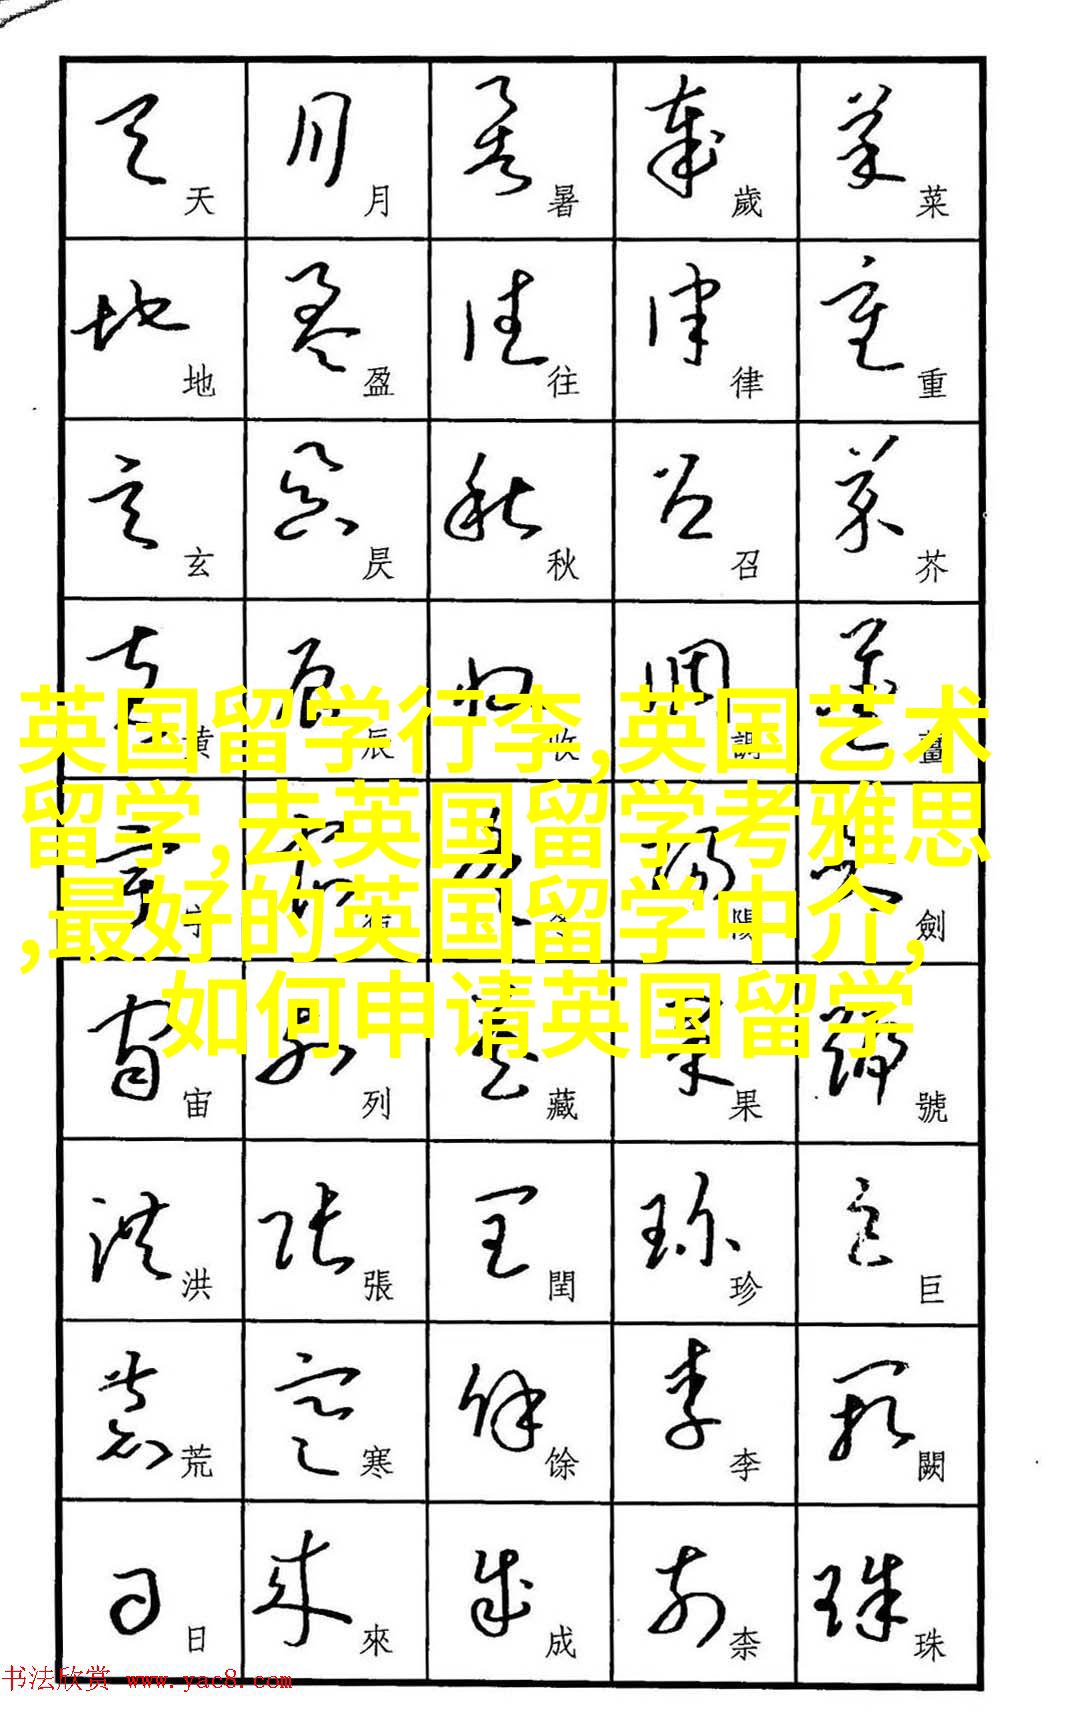 天 月 暑 歲 菜
地 盈 往 律 重
玄 昃 秋 召 芥
黄 辰 收 調 薑
英国留学行李,英国艺术
留学,去英国留学考雅思
,最好的英国留学中介,
如何申请英国留学
宇 宿 陽 劍
宙 列 藏 果 號
洪 張 閏 珍 巨
荒 寒 馀 李 闕
日 來 成 柰 珠
书法欣赏 www.yac8.com